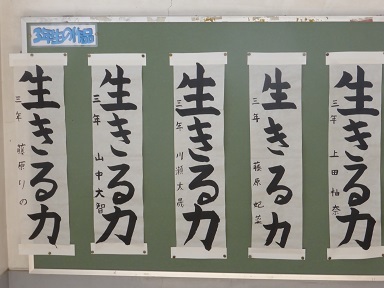 3年生の作品
生きる力
三年 藤原りの
生きる力
三年 山中大智
生きる力
三年 川瀬大晟
生きる力
三年 藤原妃菜
生きる力
三年 上田怜奈